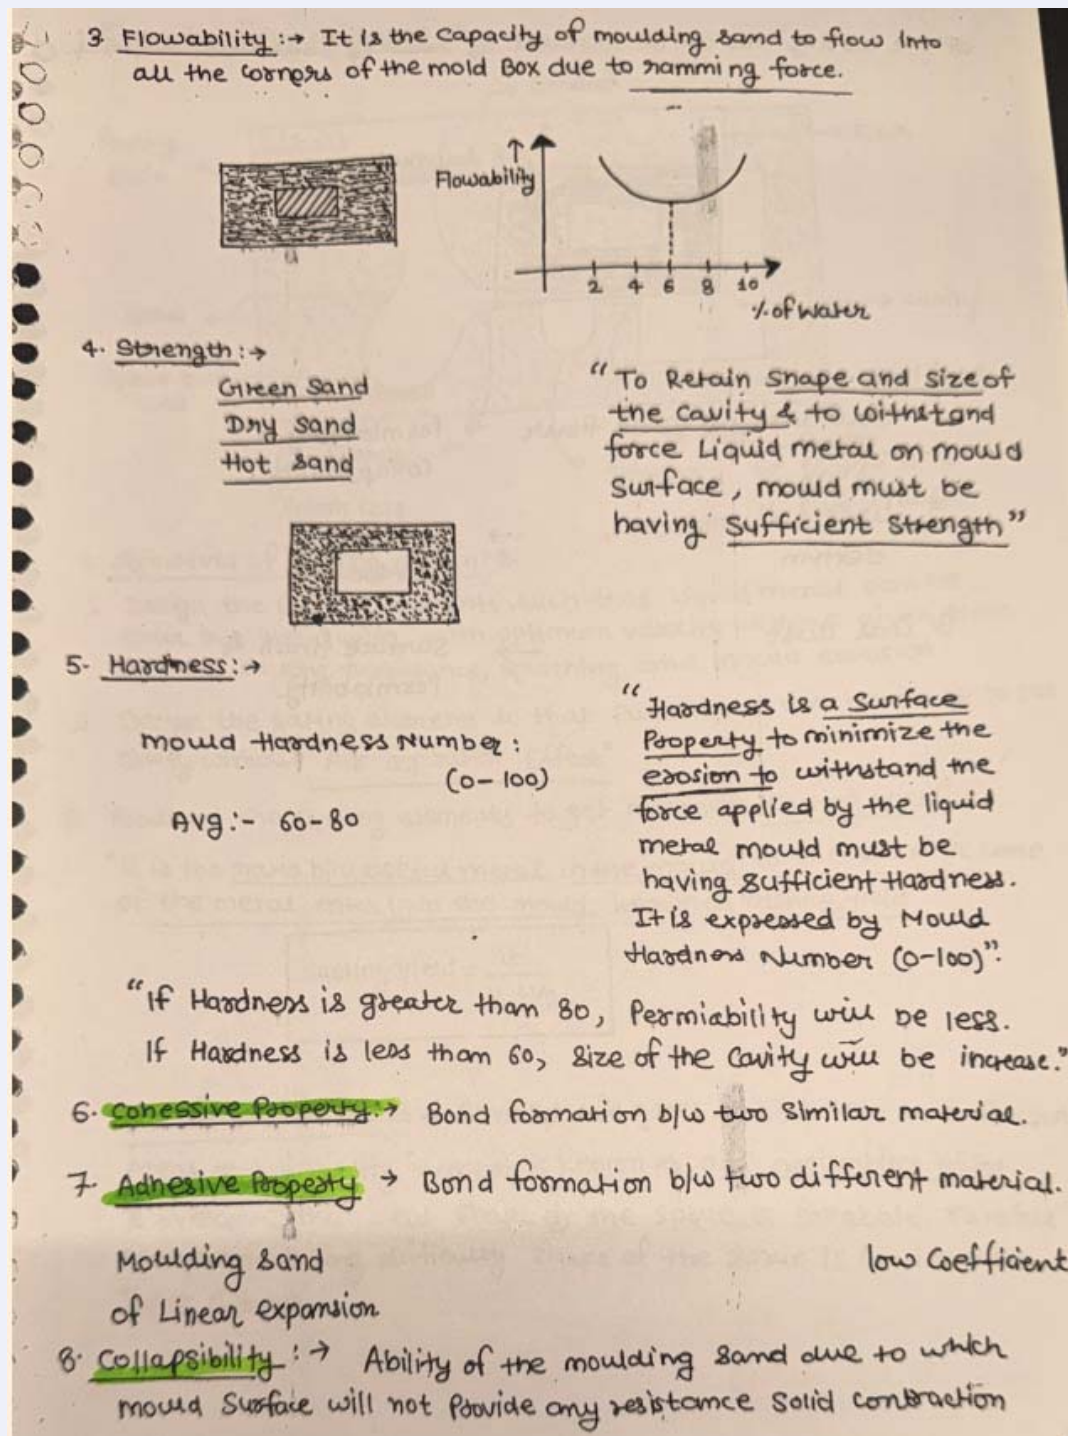 3 Flowability :→ It is the capacity of moulding sand to flow into
all the corners of the mold Box due to ramming force.
↑
Flowability
2 4 6 8 10
% of water
4. Strength :→
Green Sand
Dry sand
Hot sand
"To Retain shape and size of
the cavity & to withstand
force Liquid metal on mould
surface, mould must be
having sufficient strength"
5- Hardness :→
mould Hardness Number :
(0-100)
Avg :- 60-80
"Hardness is a surface
Property to minimize the
erosion to withstand the
force applied by the liquid
metal mould must be
having sufficient Hardness.
It is expressed by Mould
Hardness Number (0-100)".
"If Hardness is greater than 80, Permiability will be less.
If Hardness is less than 60, size of the cavity will be increase."
6. Cohessive Property :→ Bond formation b/w two similar material.
7. Adhesive Property → Bond formation b/w two different material.
Moulding sand low Coefficient
of Linear expansion
8. Collapsibility :→ Ability of the moulding sand due to which
mould Surface will not Provide any resistance Solid contraction